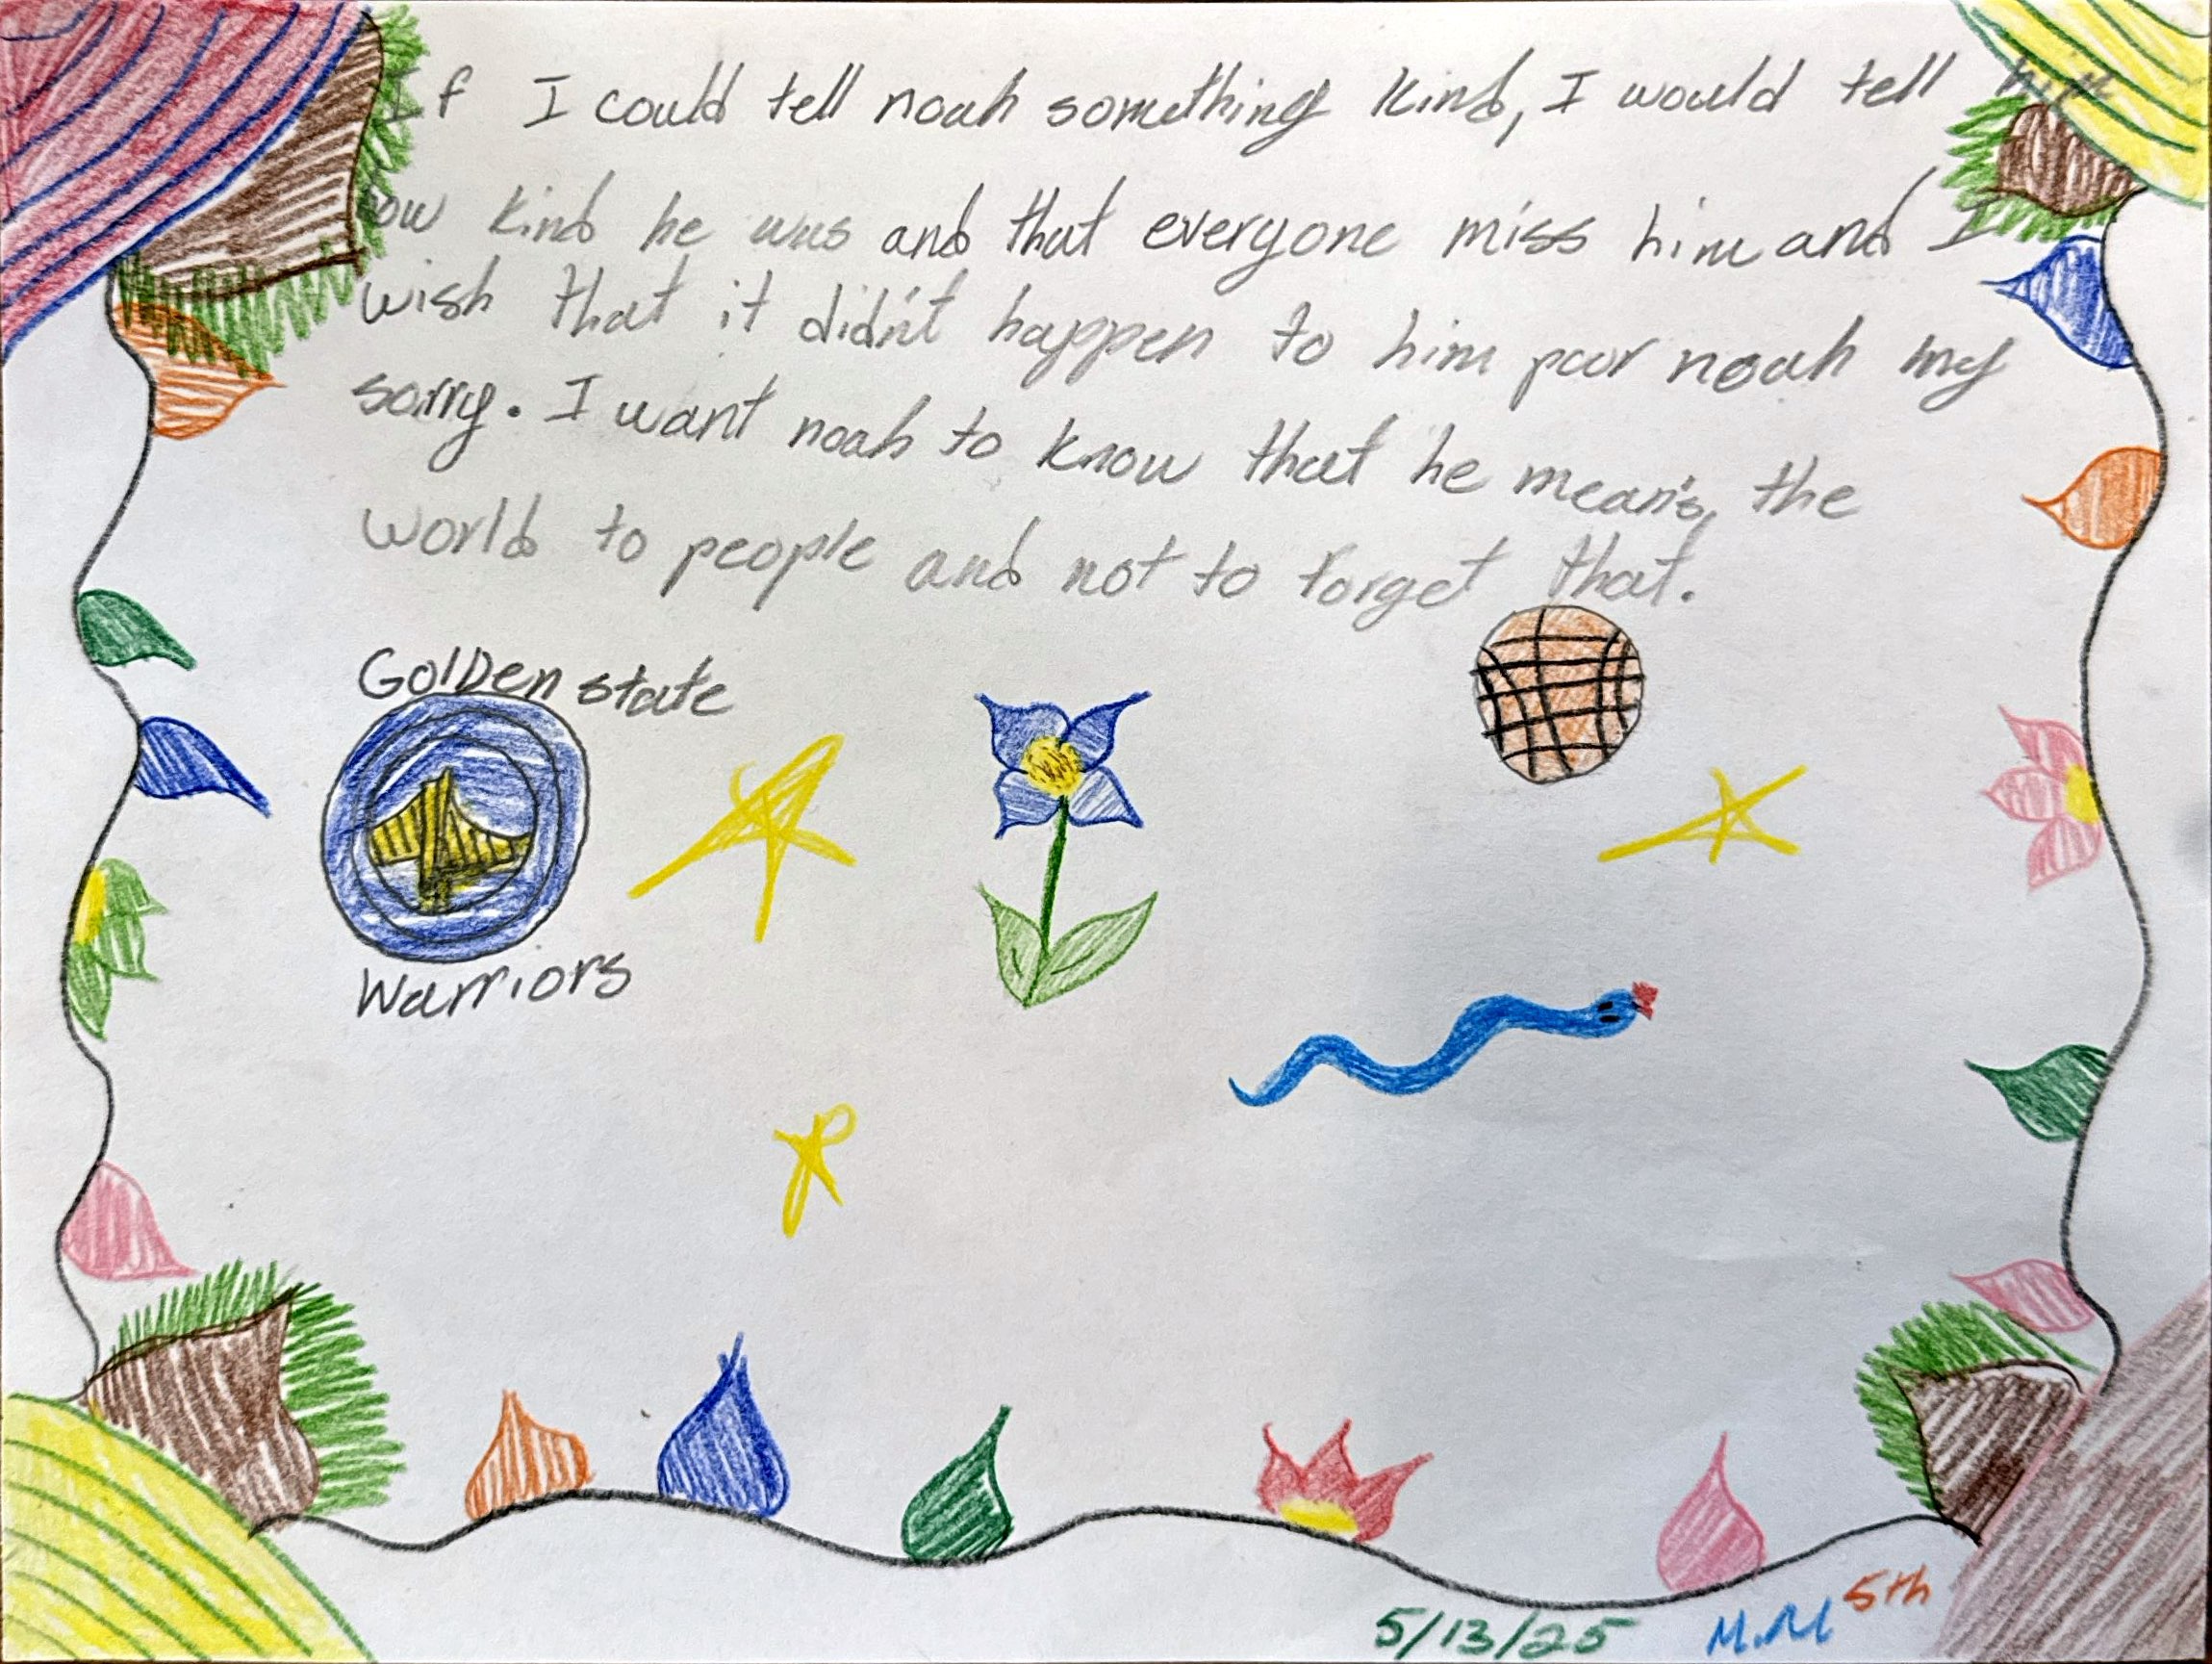 If I could tell noah something kind, I would tell him
how kind he was and that everyone miss him and I
wish that it didn't happen to him poor noah my
sorry. I want noah to know that he mean's, the
world to people and not to forget that.
Golden state
Warriors
5/13/25 M.M 5th